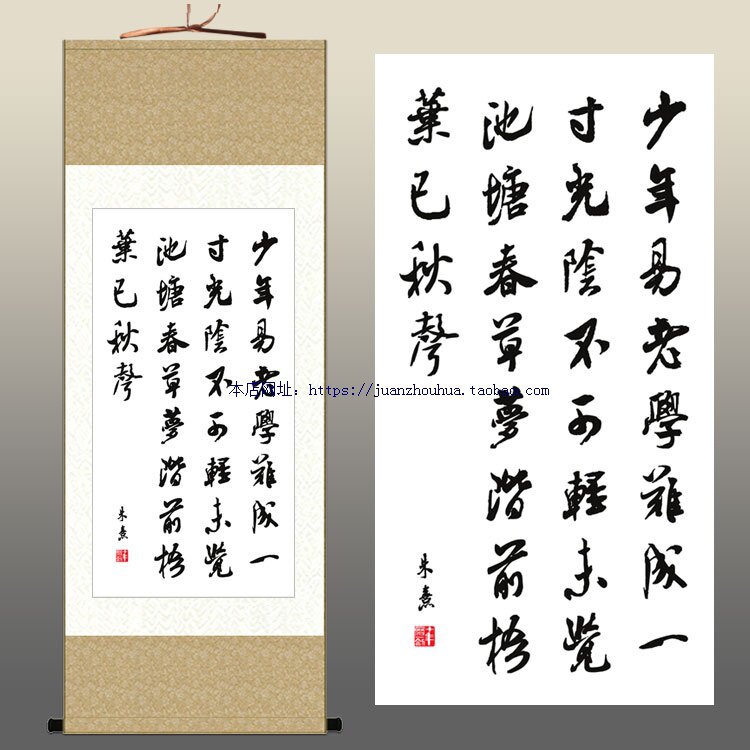 少年易老學難成一
寸光陰不可輕未覺
池塘春草夢階前梧
葉已秋聲
朱熹
本店网址：https://juanzhouhua.taobao.com
少年易老學難成一
寸光陰不可輕未覺
池塘春草夢階前梧
葉已秋聲
朱熹